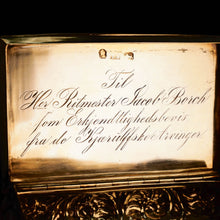 Til
Her Ritmester Jacob Borch
som Erkjendtlighedsbevis
fra de Kjærulffske Arvinger